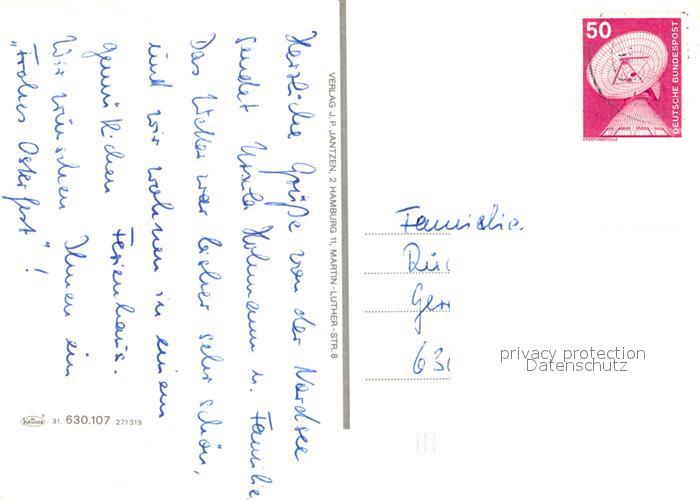 Herzliche Grüße von der Nordsee
sendet Ursula Hohmann u. Familie
Das Wetter war bisher sehr schön,
und wir wohnen in einem
gemütlichen Ferienhaus.
Wir wünschen Ihnen ein
"Frohes Osterfest"!
VERLAG J. P. JANTZEN, 2 HAMBURG 11, MARTIN-LUTHER-STR. 8
50
DEUTSCHE BUNDESPOST
ERDEFUNKSTELLE
Familie
Ger
63
privacy protection
Datenschutz
KRÜGER 31. 630.107 271319